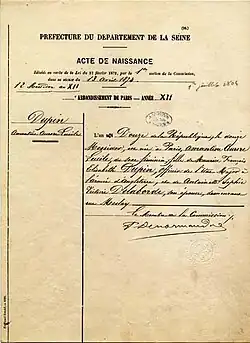 PREFECTURE DU DEPARTEMENT DE LA SEINE
ACTE DE NAISSANCE
Rétabli en vertu de la Loi du 12 février 1872, par la 1re section de la Commission,
dans sa séance du
12 Messidor an XII
1er juillet 1804
ARRONDISSEMENT DE PARIS — ANNÉE XII
Dupin
Amantine Aurore Lucile
L'an Douze de la République, le douze
Messidor, est née à Paris, Amantine Aurore
Lucile, du sexe féminin, fille de Maurice François
Elisabeth Dupin, officier de l'état Major à
l'armée d'Angleterre, et de Antoinette Sophie
Victoire Delaborde, son épouse, demeurant
rue Meslay
Le Membre de la Commission,